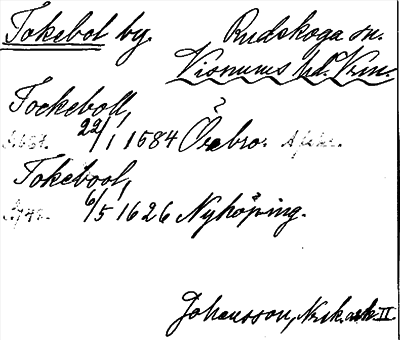 Tokebol by. Rudskoga sn.
Visnums hd. Vrm.
Tockeboll,
22/1 1584 Örebro.
Tokebool,
6/5 1626 Nyköping.
Johansson, Nrk. ark. II